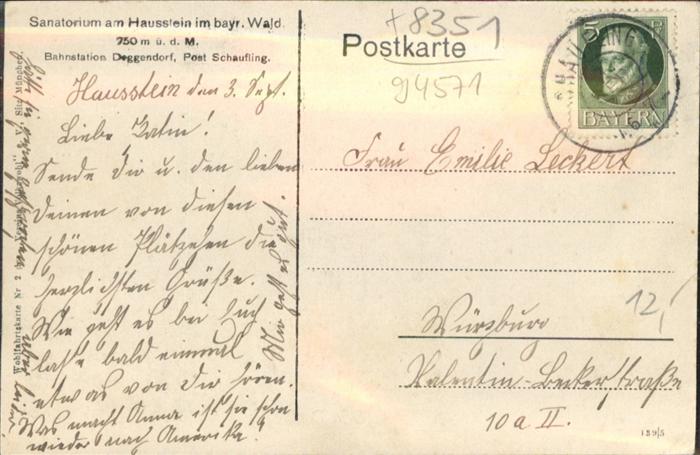 Sanatorium am Hausstein im bayr. Wald.
750 m ü. d. M.
Bahnstation Deggendorf, Post Schaufling.
Hausstein den 3. Sept.
Liebe Katin!
Sende dir u. den lieben
Deinen von diesem
schönen Plätzchen die
herzlichsten Grüße.
Wie geht es bei Euch
laße bald einmal
etwas von dir hören.
Was macht Anna ist sie schon
wieder nach Amerika?
Mir geht es gut.
Wohlfahrtskarte Nr 2
Sitz München
Postkarte
+8351
94571
5 P
BAYERN
SCHAUFLING
Frau Emilie Leckert
Würzburg
Valentin-Beckerstraße
10 a II.
12,-
189/5